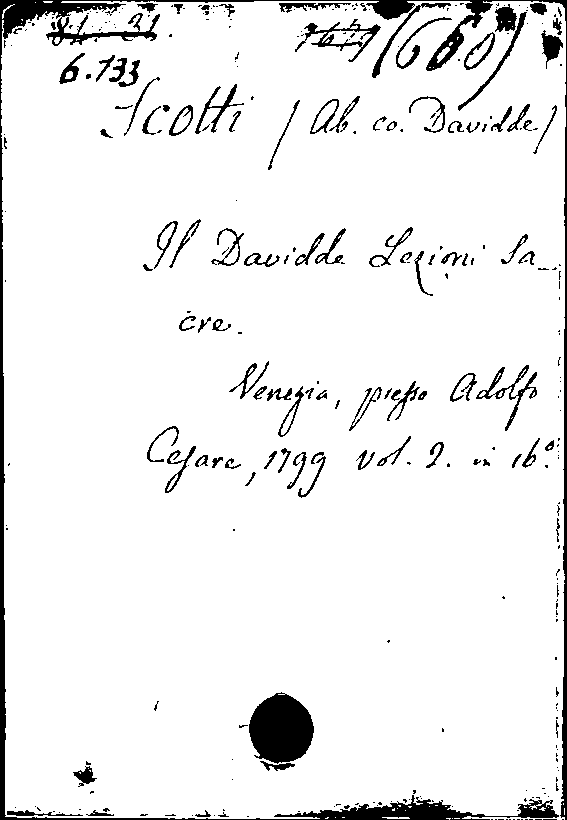 81. 31.
1679 (660)
6.133
Scotti (Ab. co. Davidde)
Il Davidde Lezioni Sa_
cre.
Venezia, presso Adolfo
Cesare, 1799 vol. 2. in 16.°